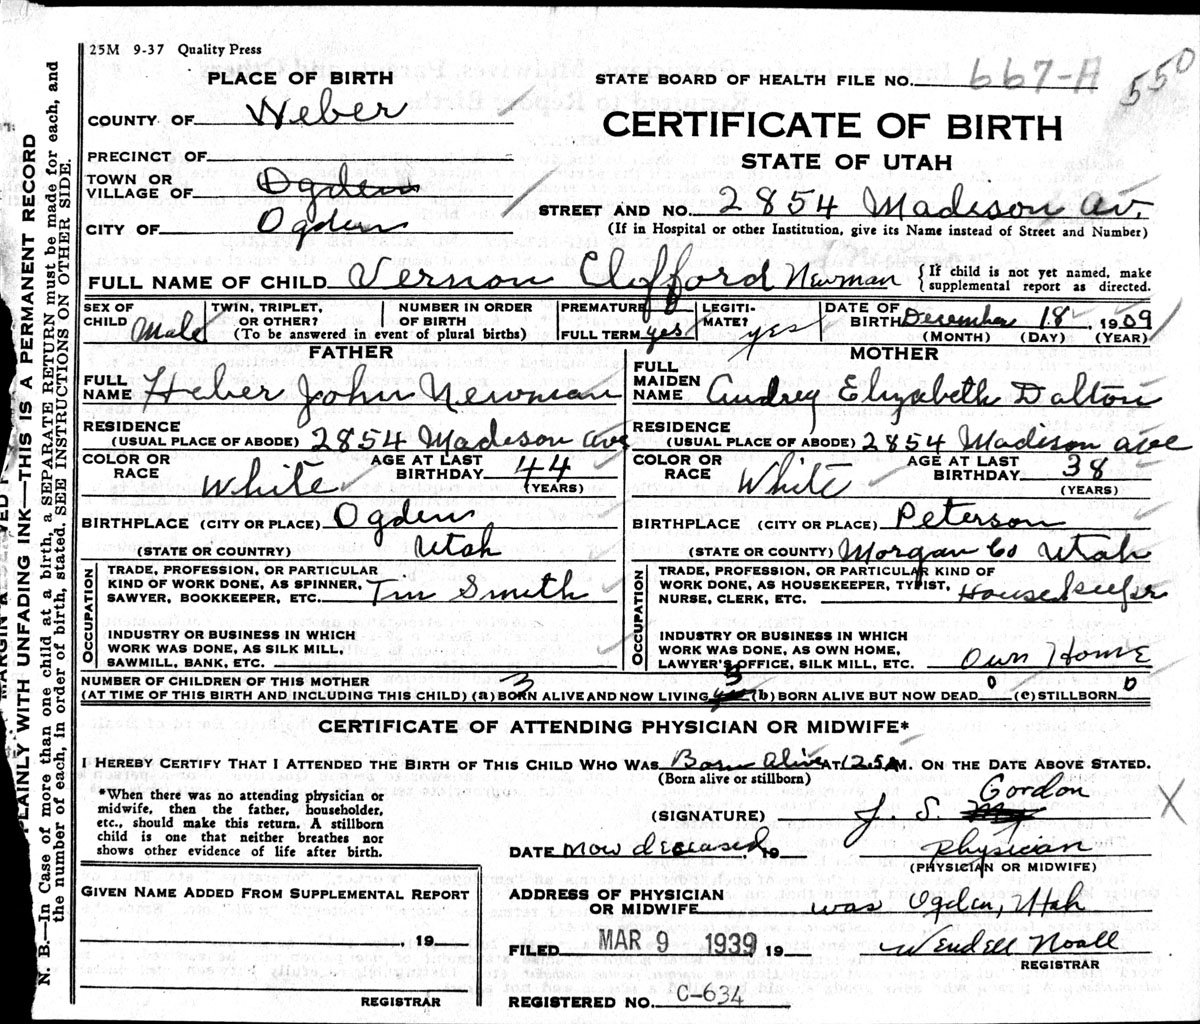 25M 9-37 Quality Press
PLACE OF BIRTH
STATE BOARD OF HEALTH FILE NO. 667-A 550
COUNTY OF Weber
CERTIFICATE OF BIRTH
PRECINCT OF
STATE OF UTAH
TOWN OR VILLAGE OF Ogden
STREET AND NO. 2854 Madison Av.
CITY OF Ogden
(If in Hospital or other Institution, give its Name instead of Street and Number)
FULL NAME OF CHILD Vernon Clifford Newman {If child is not yet named, make supplemental report as directed.
SEX OF CHILD Male
TWIN, TRIPLET, OR OTHER?
NUMBER IN ORDER OF BIRTH
(To be answered in event of plural births)
PREMATURE
FULL TERM yes
LEGITIMATE? yes
DATE OF BIRTH December 18 1909
(MONTH) (DAY) (YEAR)
FATHER
FULL NAME Heber John Newman
RESIDENCE (USUAL PLACE OF ABODE) 2854 Madison ave
COLOR OR RACE White AGE AT LAST BIRTHDAY 44 (YEARS)
BIRTHPLACE (CITY OR PLACE) Ogden
(STATE OR COUNTRY) Utah
OCCUPATION
TRADE, PROFESSION, OR PARTICULAR
KIND OF WORK DONE, AS SPINNER,
SAWYER, BOOKKEEPER, ETC. Tin Smith
INDUSTRY OR BUSINESS IN WHICH
WORK WAS DONE, AS SILK MILL,
SAWMILL, BANK, ETC.
MOTHER
FULL MAIDEN NAME Audrey Elizabeth Dalton
RESIDENCE (USUAL PLACE OF ABODE) 2854 Madison ave
COLOR OR RACE White AGE AT LAST BIRTHDAY 38 (YEARS)
BIRTHPLACE (CITY OR PLACE) Peterson
(STATE OR COUNTY) Morgan Co Utah
OCCUPATION
TRADE, PROFESSION, OR PARTICULAR KIND OF
WORK DONE, AS HOUSEKEEPER, TYPIST,
NURSE, CLERK, ETC. House keeper
INDUSTRY OR BUSINESS IN WHICH
WORK WAS DONE, AS OWN HOME,
LAWYER'S OFFICE, SILK MILL, ETC. Own Home
NUMBER OF CHILDREN OF THIS MOTHER
(AT TIME OF THIS BIRTH AND INCLUDING THIS CHILD) (a) BORN ALIVE AND NOW LIVING 3 (b) BORN ALIVE BUT NOW DEAD 0 (c) STILLBORN 0
CERTIFICATE OF ATTENDING PHYSICIAN OR MIDWIFE*
I HEREBY CERTIFY THAT I ATTENDED THE BIRTH OF THIS CHILD WHO WAS Born Alive AT 12.5 A M. ON THE DATE ABOVE STATED.
(Born alive or stillborn)
*When there was no attending physician or
midwife, then the father, householder,
etc., should make this return. A stillborn
child is one that neither breathes nor
shows other evidence of life after birth.
(SIGNATURE) J. S. Gordon
DATE now deceased 19 Physician
(PHYSICIAN OR MIDWIFE)
GIVEN NAME ADDED FROM SUPPLEMENTAL REPORT
, 19
REGISTRAR
ADDRESS OF PHYSICIAN OR MIDWIFE was Ogden, Utah
FILED MAR 9 1939 19 Wendell Noall
REGISTRAR
REGISTERED NO. C-634
PLAINLY WITH UNFADING INK—THIS IS A PERMANENT RECORD
N. B.—In Case of more than one child at a birth, a SEPARATE RETURN must be made for each, and
the number of each, in order of birth, stated. SEE INSTRUCTIONS ON OTHER SIDE.